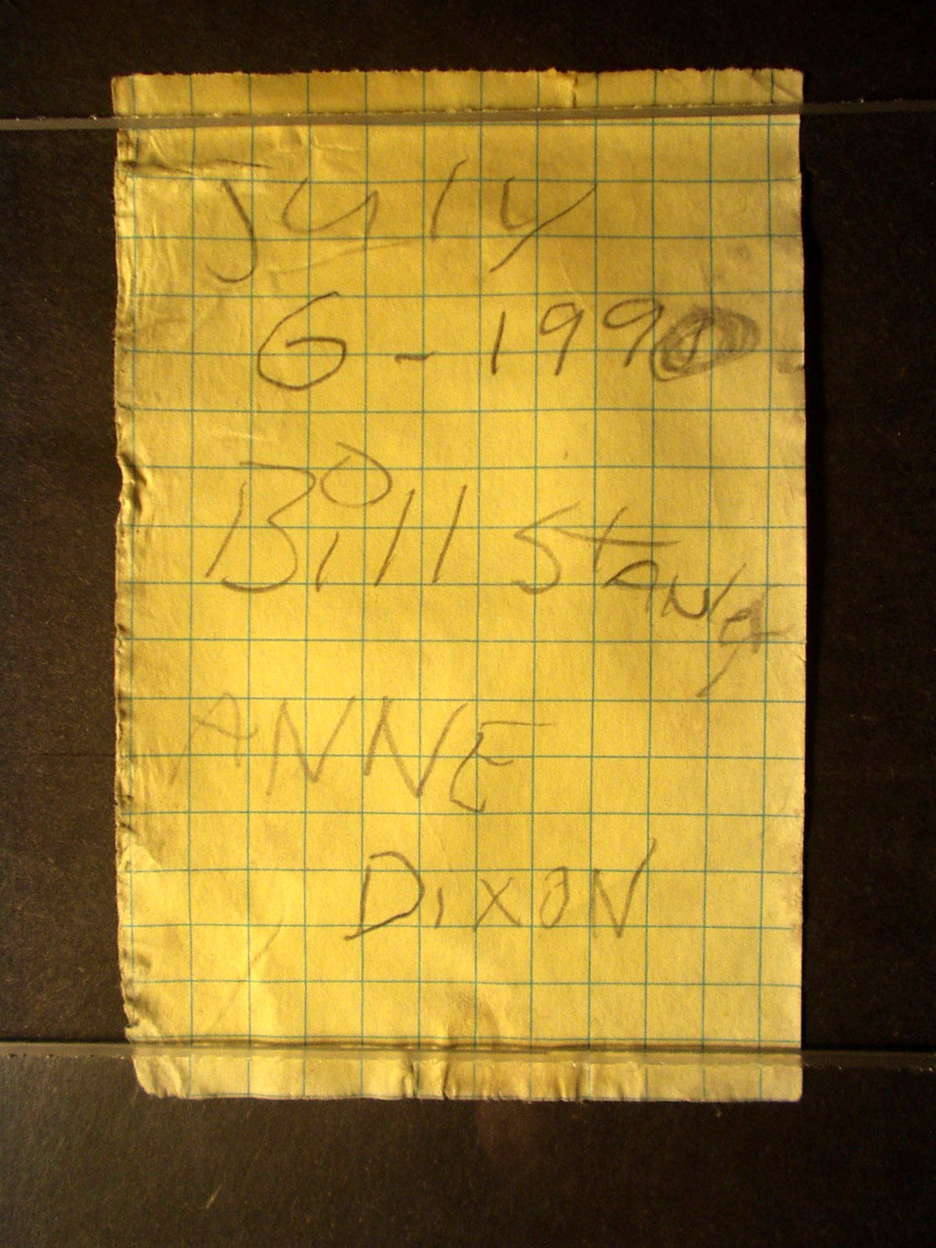 July
6-1990
Bill Stang
ANNE
DIXON